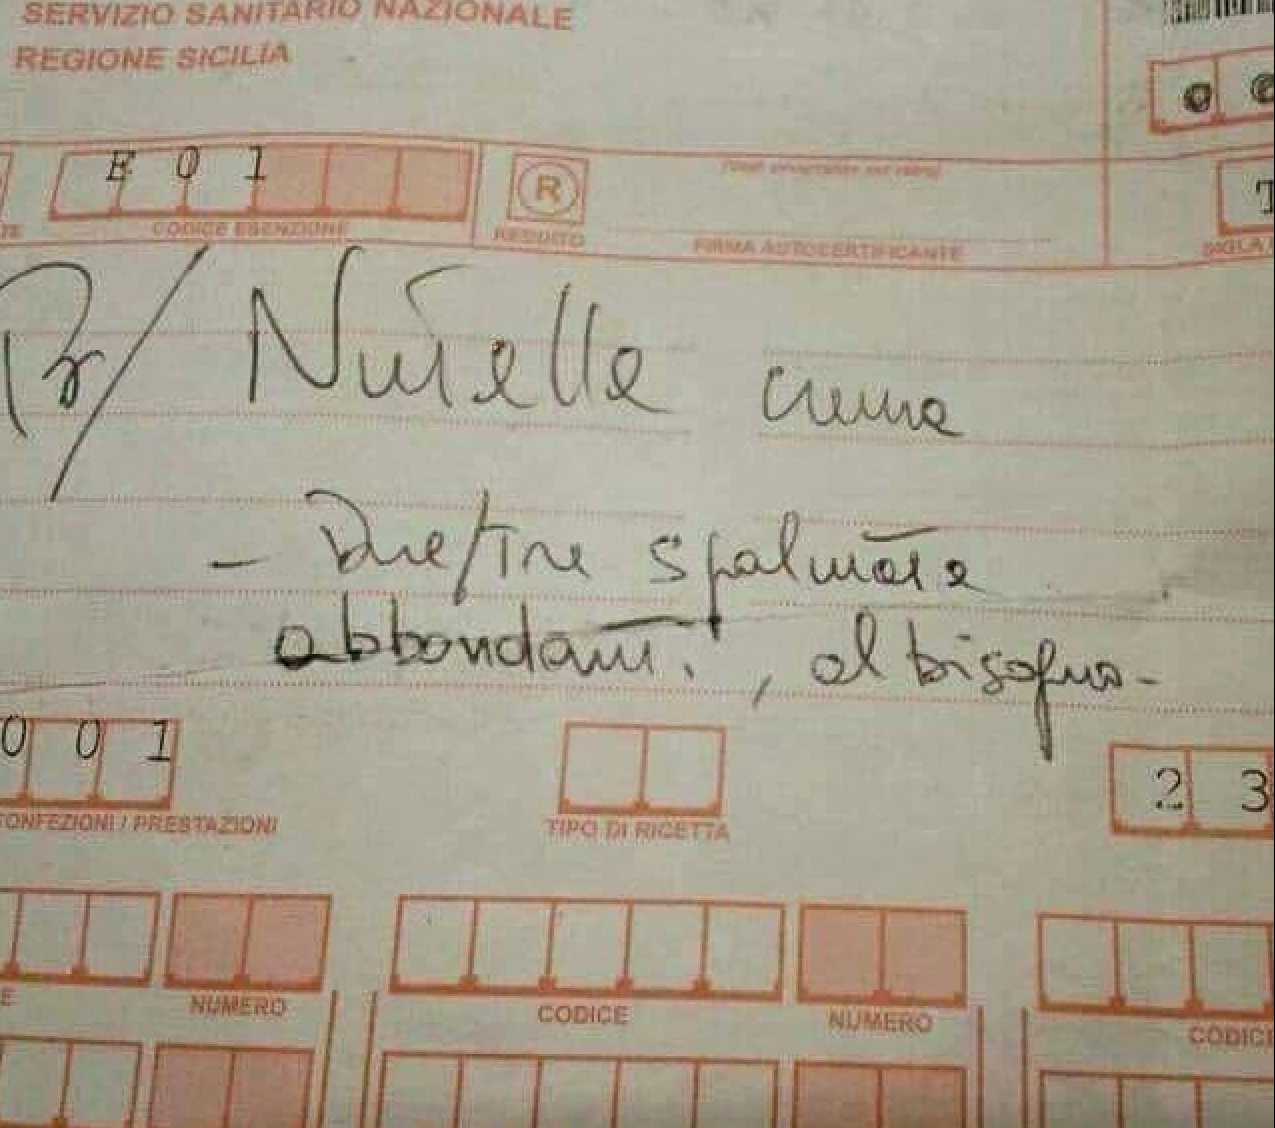 SERVIZIO SANITARIO NAZIONALE
REGIONE SICILIA
E 0 1
CODICE ESENZIONE
R
REDDITO
FIRMA AUTOCERTIFICANTE
SIGLA
Pr/ Nutella crema
- Due/Tre spalmate
abbondanti, al bisogno-
0 0 1
CONFEZIONI / PRESTAZIONI
TIPO DI RICETTA
2 3
NUMERO
CODICE
NUMERO
CODICE